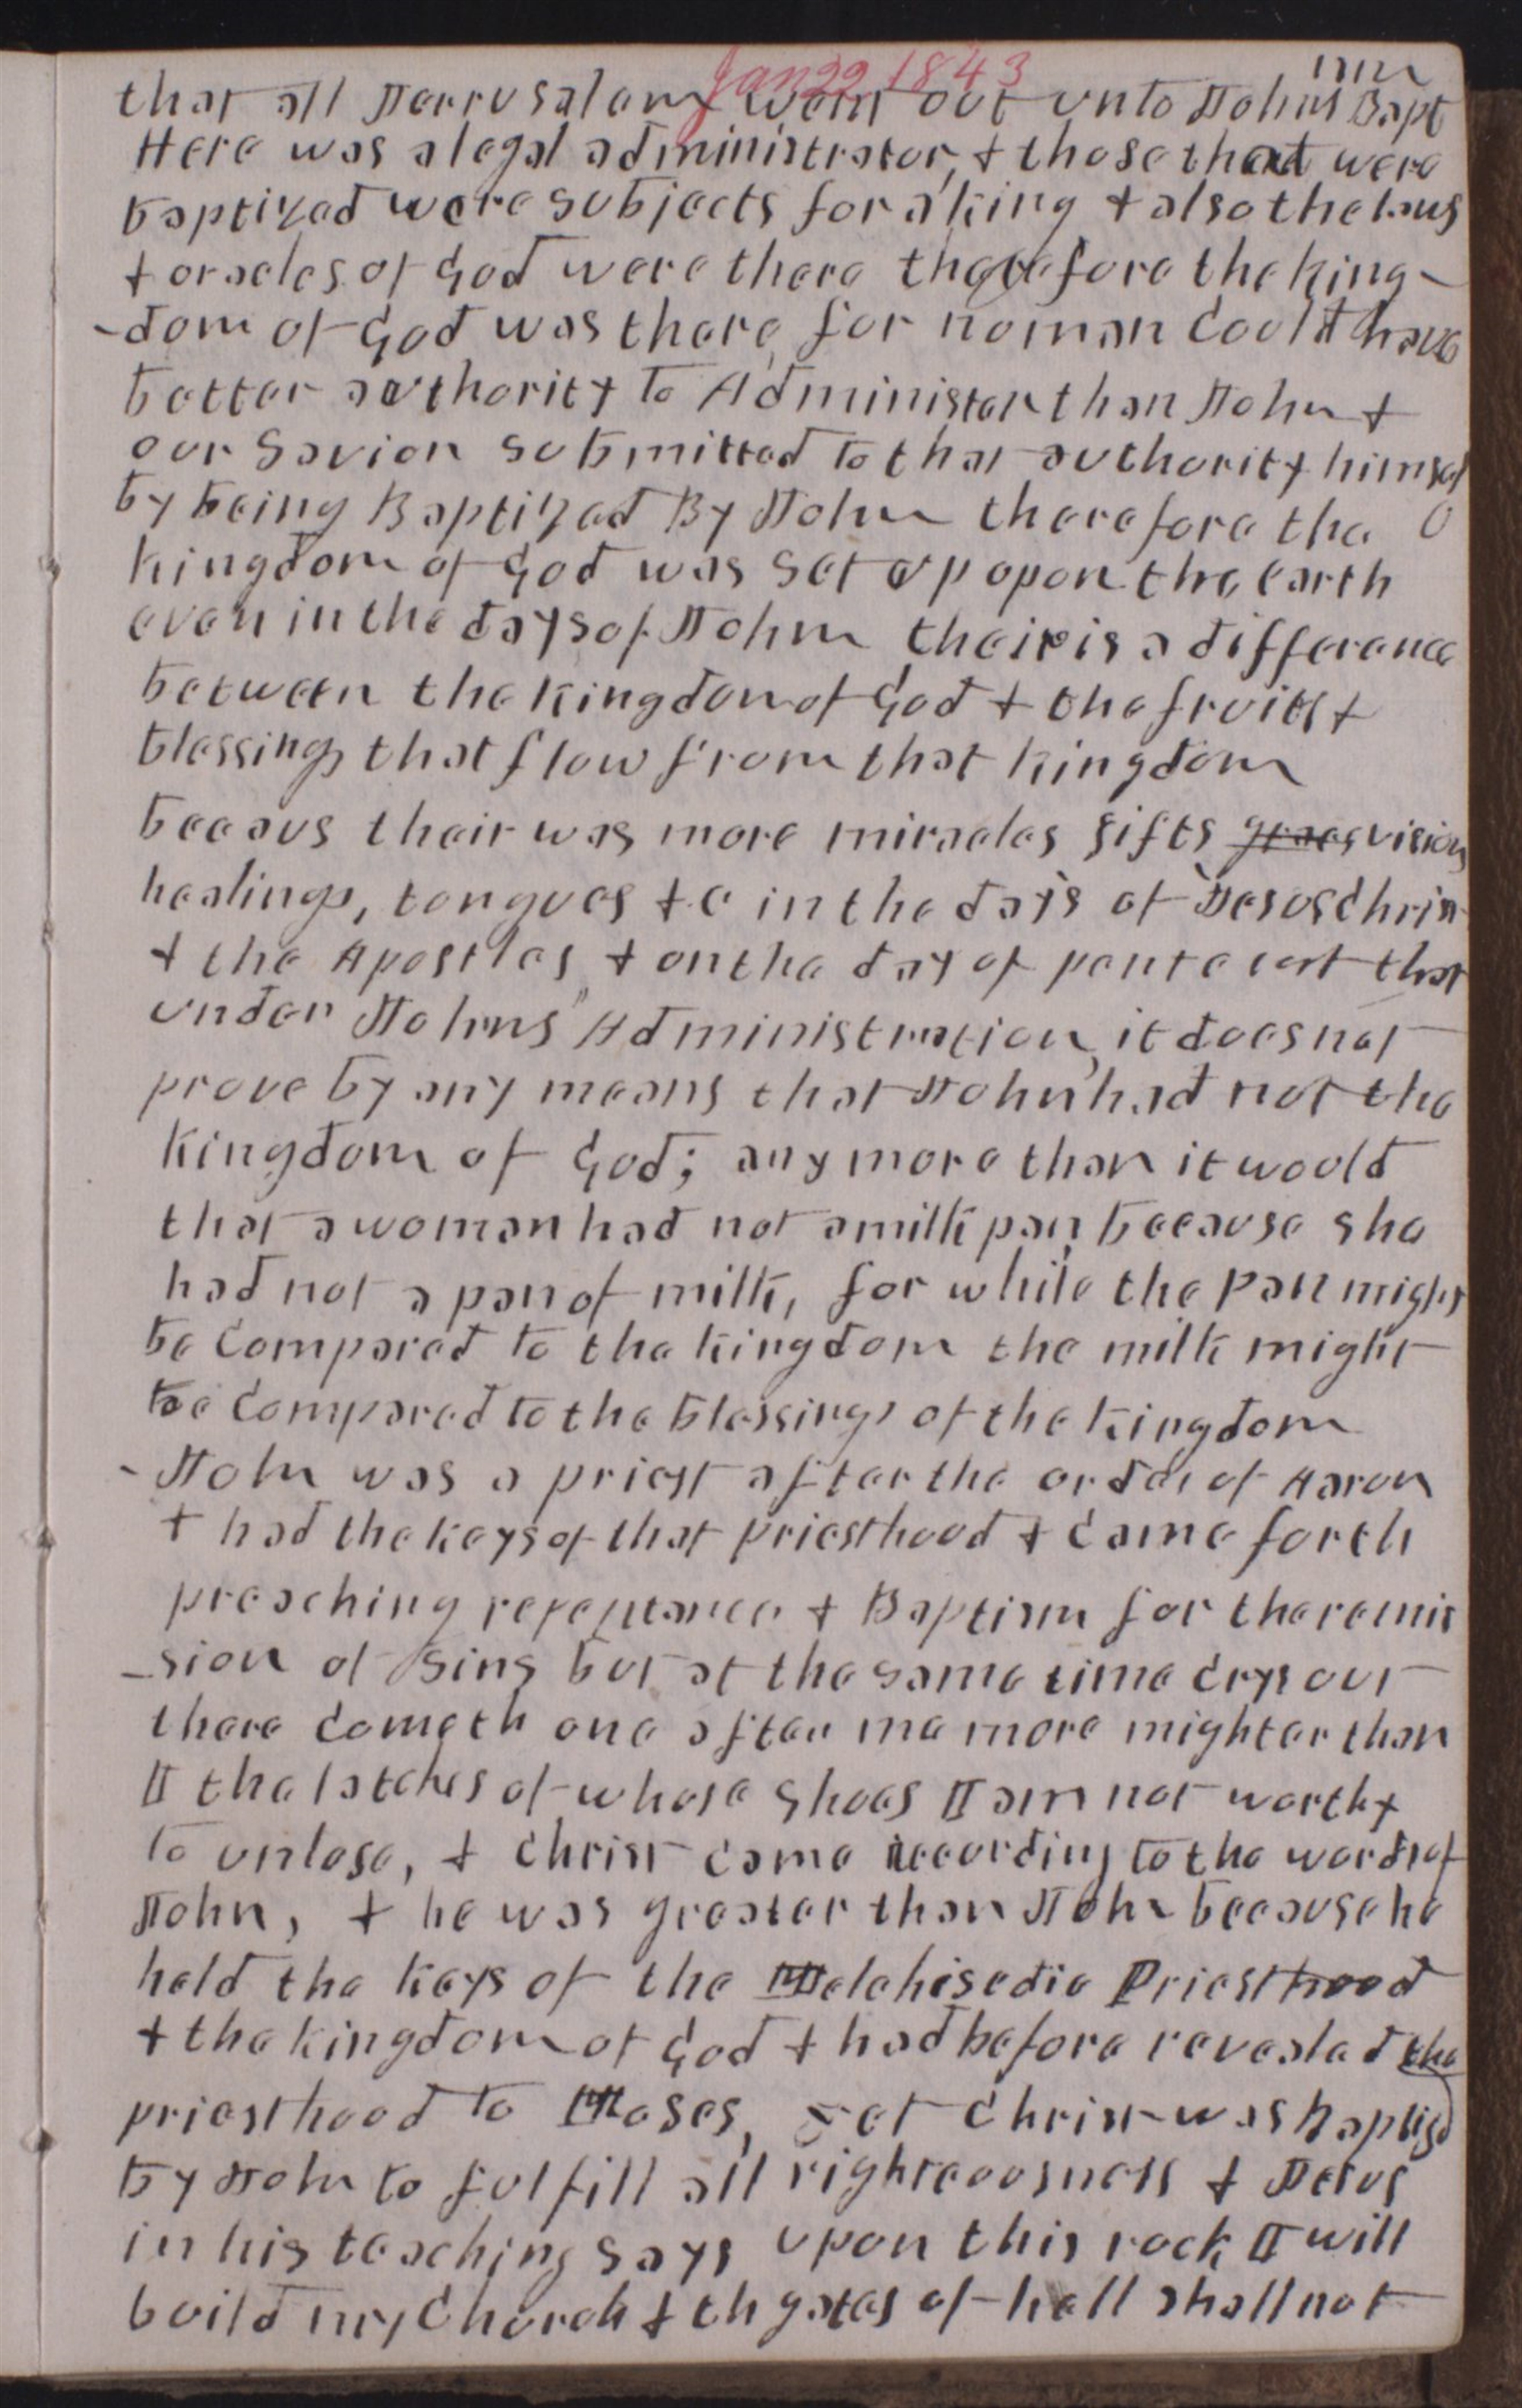 Jan 22 1843
that all Jerrusalem went out unto Johns Bapt
ism
Here was a legal administrator, & those that were
baptized were subjects for a king & also the laws
& oracles of God were there therefore the king-
-dom of God was there, for no man could have
better authority to Administer than John &
our Savior submitted to that authority himself
by being Baptized By John therefore the
kingdom of God was set up upon the earth
even in the days of John their is a difference
between the kingdom of God & the fruits &
blessings that flow from that kingdom
becaus their was more miracles gifts graces visions
healings, tongues &c in the days of Jesus Christ
& the Apostles & on the day of pentecost than
under Johns Administration, it does not
prove by any means that John had not the
Kingdom of God; any more than it would
that a woman had not a milk pan because she
had not a pan of milk, for while the pan might
be compared to the kingdom the milk might
be compared to the blessings of the kingdom
- John was a priest after the order of Aaron
& had the keys of that priesthood & came forth
preaching repentance & Baptism for the remis
-sion of sins but at the same time crys out
there cometh one after me more mighter than
I the latches of whose shoes I am not worthy
to unlose, & Christ came according to the words of
John, & he was greater than John because he
held the keys of the Melchisedic Priesthood
& the kingdom of God & had before revealed the
priesthood to Moses, yet Christ was baptized
by John to fulfill all righteousness & Jesus
in his teaching says upon this rock I will
build my Church & th gates of hell shall not